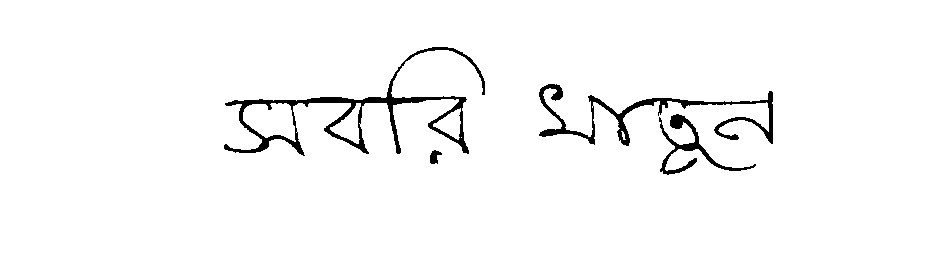 সবরি খাতুন